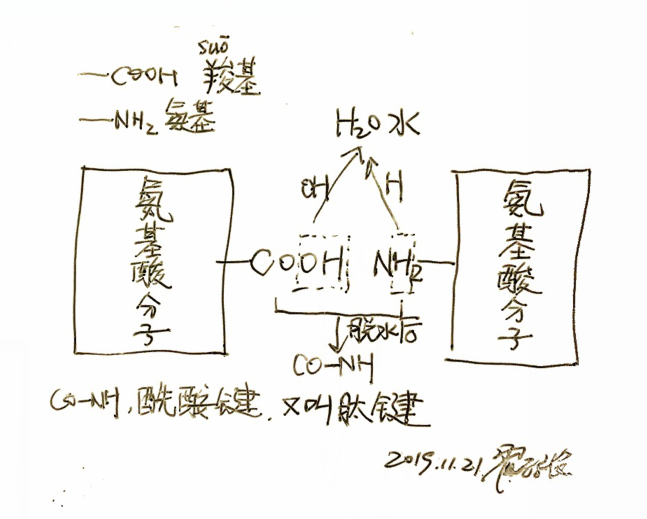 suō
—COOH 羧基
—NH₂ 氨基
H₂O 水
OH H
氨基酸分子
COOH NH₂
氨基酸分子
脱水后
CO-NH
CO-NH, 酰酸键, 又叫肽键
2019.11.21